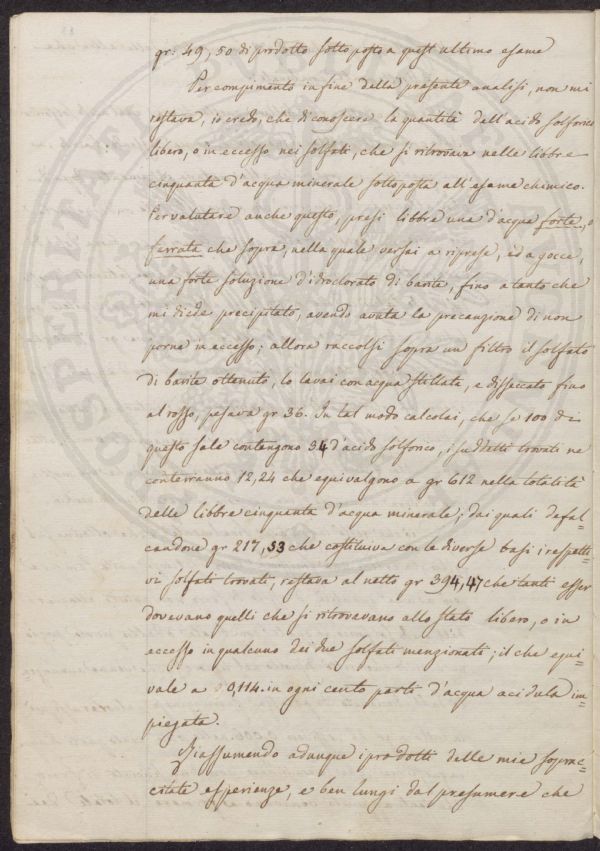 gr: 49, 50 di prodotto sottoposto a quest'ultimo esame
Per compimento in fine della presente analisi, non mi
restava, io credo, che di conoscere la quantità dell'acido solforico
libero, o in eccesso nei solfati, che si ritrovava nelle libbre
cinquanta d'acqua minerale sottoposta all'esame chimico.
Per valutare anche questo, presi libbre una d'acqua forte, o
ferrata che sopra, nella quale versai a riprese, ed a gocce,
una forte soluzione d'idroclorato di barite, fino a tanto che
mi diede precipitato, avendo avuta la precauzione di non
porne in eccesso; allora raccolsi sopra un filtro il solfato
di barite ottenuto, lo lavai con acqua stillata, e dissecato fino
al rosso, pesava gr 36. In tal modo calcolai, che se 100 di
questo sale contengono 34 d'acido solforico, i suddetti trovati ne
conterranno 12,24 che equivalgono a gr 612 nella totalità
delle libbre cinquanta d'acqua minerale; dai quali defal=
candone gr 217,53 che costituiva con le diverse basi i rispetti=
vi solfati trovati, restava al netto gr 394,47 che tanti esser
dovevano quelli che si ritrovavano allo stato libero, o in
eccesso in qualcuno dei due solfati menzionati; il che equi=
vale a 0,114. in ogni cento parti d'acqua acidula im=
piegata.
Riassumendo adunque i prodotti delle mie soprac=
citate esperienze, e ben lungi dal presumere che